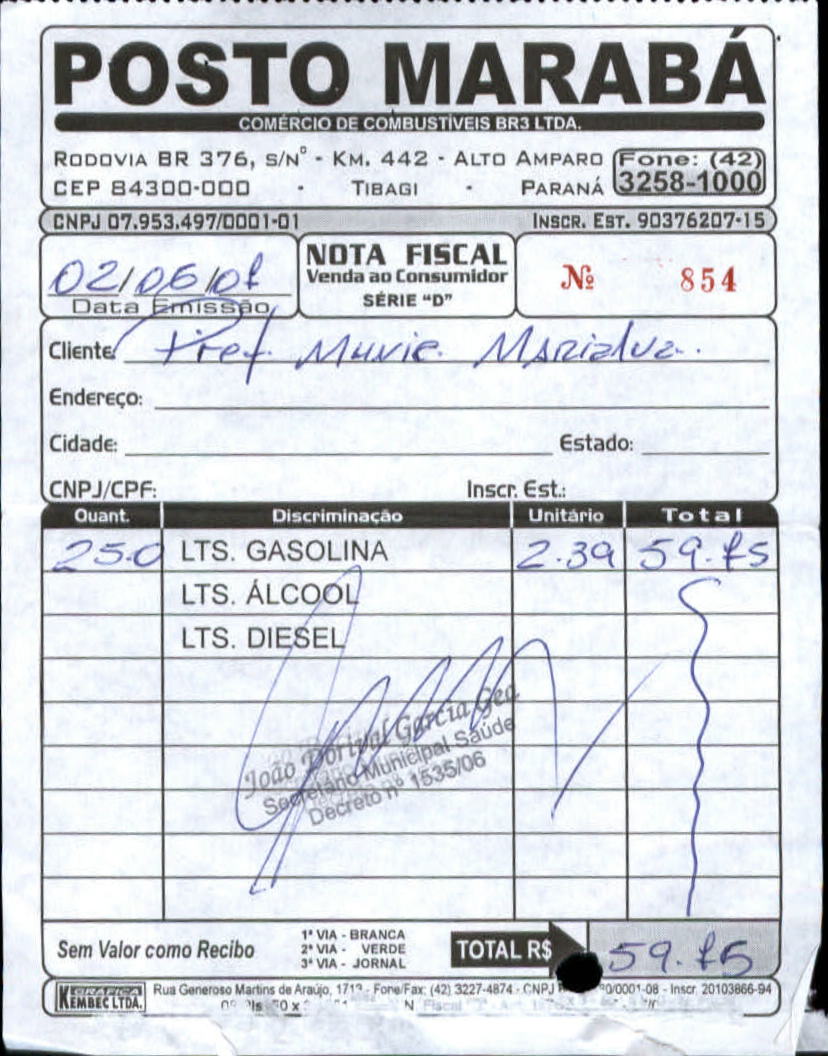 POSTO MARABÁ
COMÉRCIO DE COMBUSTÍVEIS BR3 LTDA.
RODOVIA BR 376, S/Nº - KM. 442 - ALTO AMPARO Fone: (42)
CEP 84300-000 - TIBAGI - PARANÁ 3258-1000
CNPJ 07.953.497/0001-01 INSCR. EST. 90376207-15
02/06/07 NOTA FISCAL Nº 854
Data Emissão Venda ao Consumidor
SÉRIE "D"
Cliente Pref. Munic. Marialva.
Endereço:
Cidade: Estado:
CNPJ/CPF: Inscr. Est.:
Quant. Discriminação Unitário Total
250 LTS. GASOLINA 2.39 59.75
LTS. ÁLCOOL
LTS. DIESEL
João Dorival Garcia Gea
Secretário Municipal Saúde
Decreto nº 1535/06
Sem Valor como Recibo
1ª VIA - BRANCA
2ª VIA - VERDE
3ª VIA - JORNAL
TOTAL R$ 59.75
GRÁFICA KEMBEC LTDA.
Rua Generoso Martins de Araújo, 1713 - Fone/Fax: (42) 3227-4874 - CNPJ 0/0001-08 - Inscr. 20103866-94